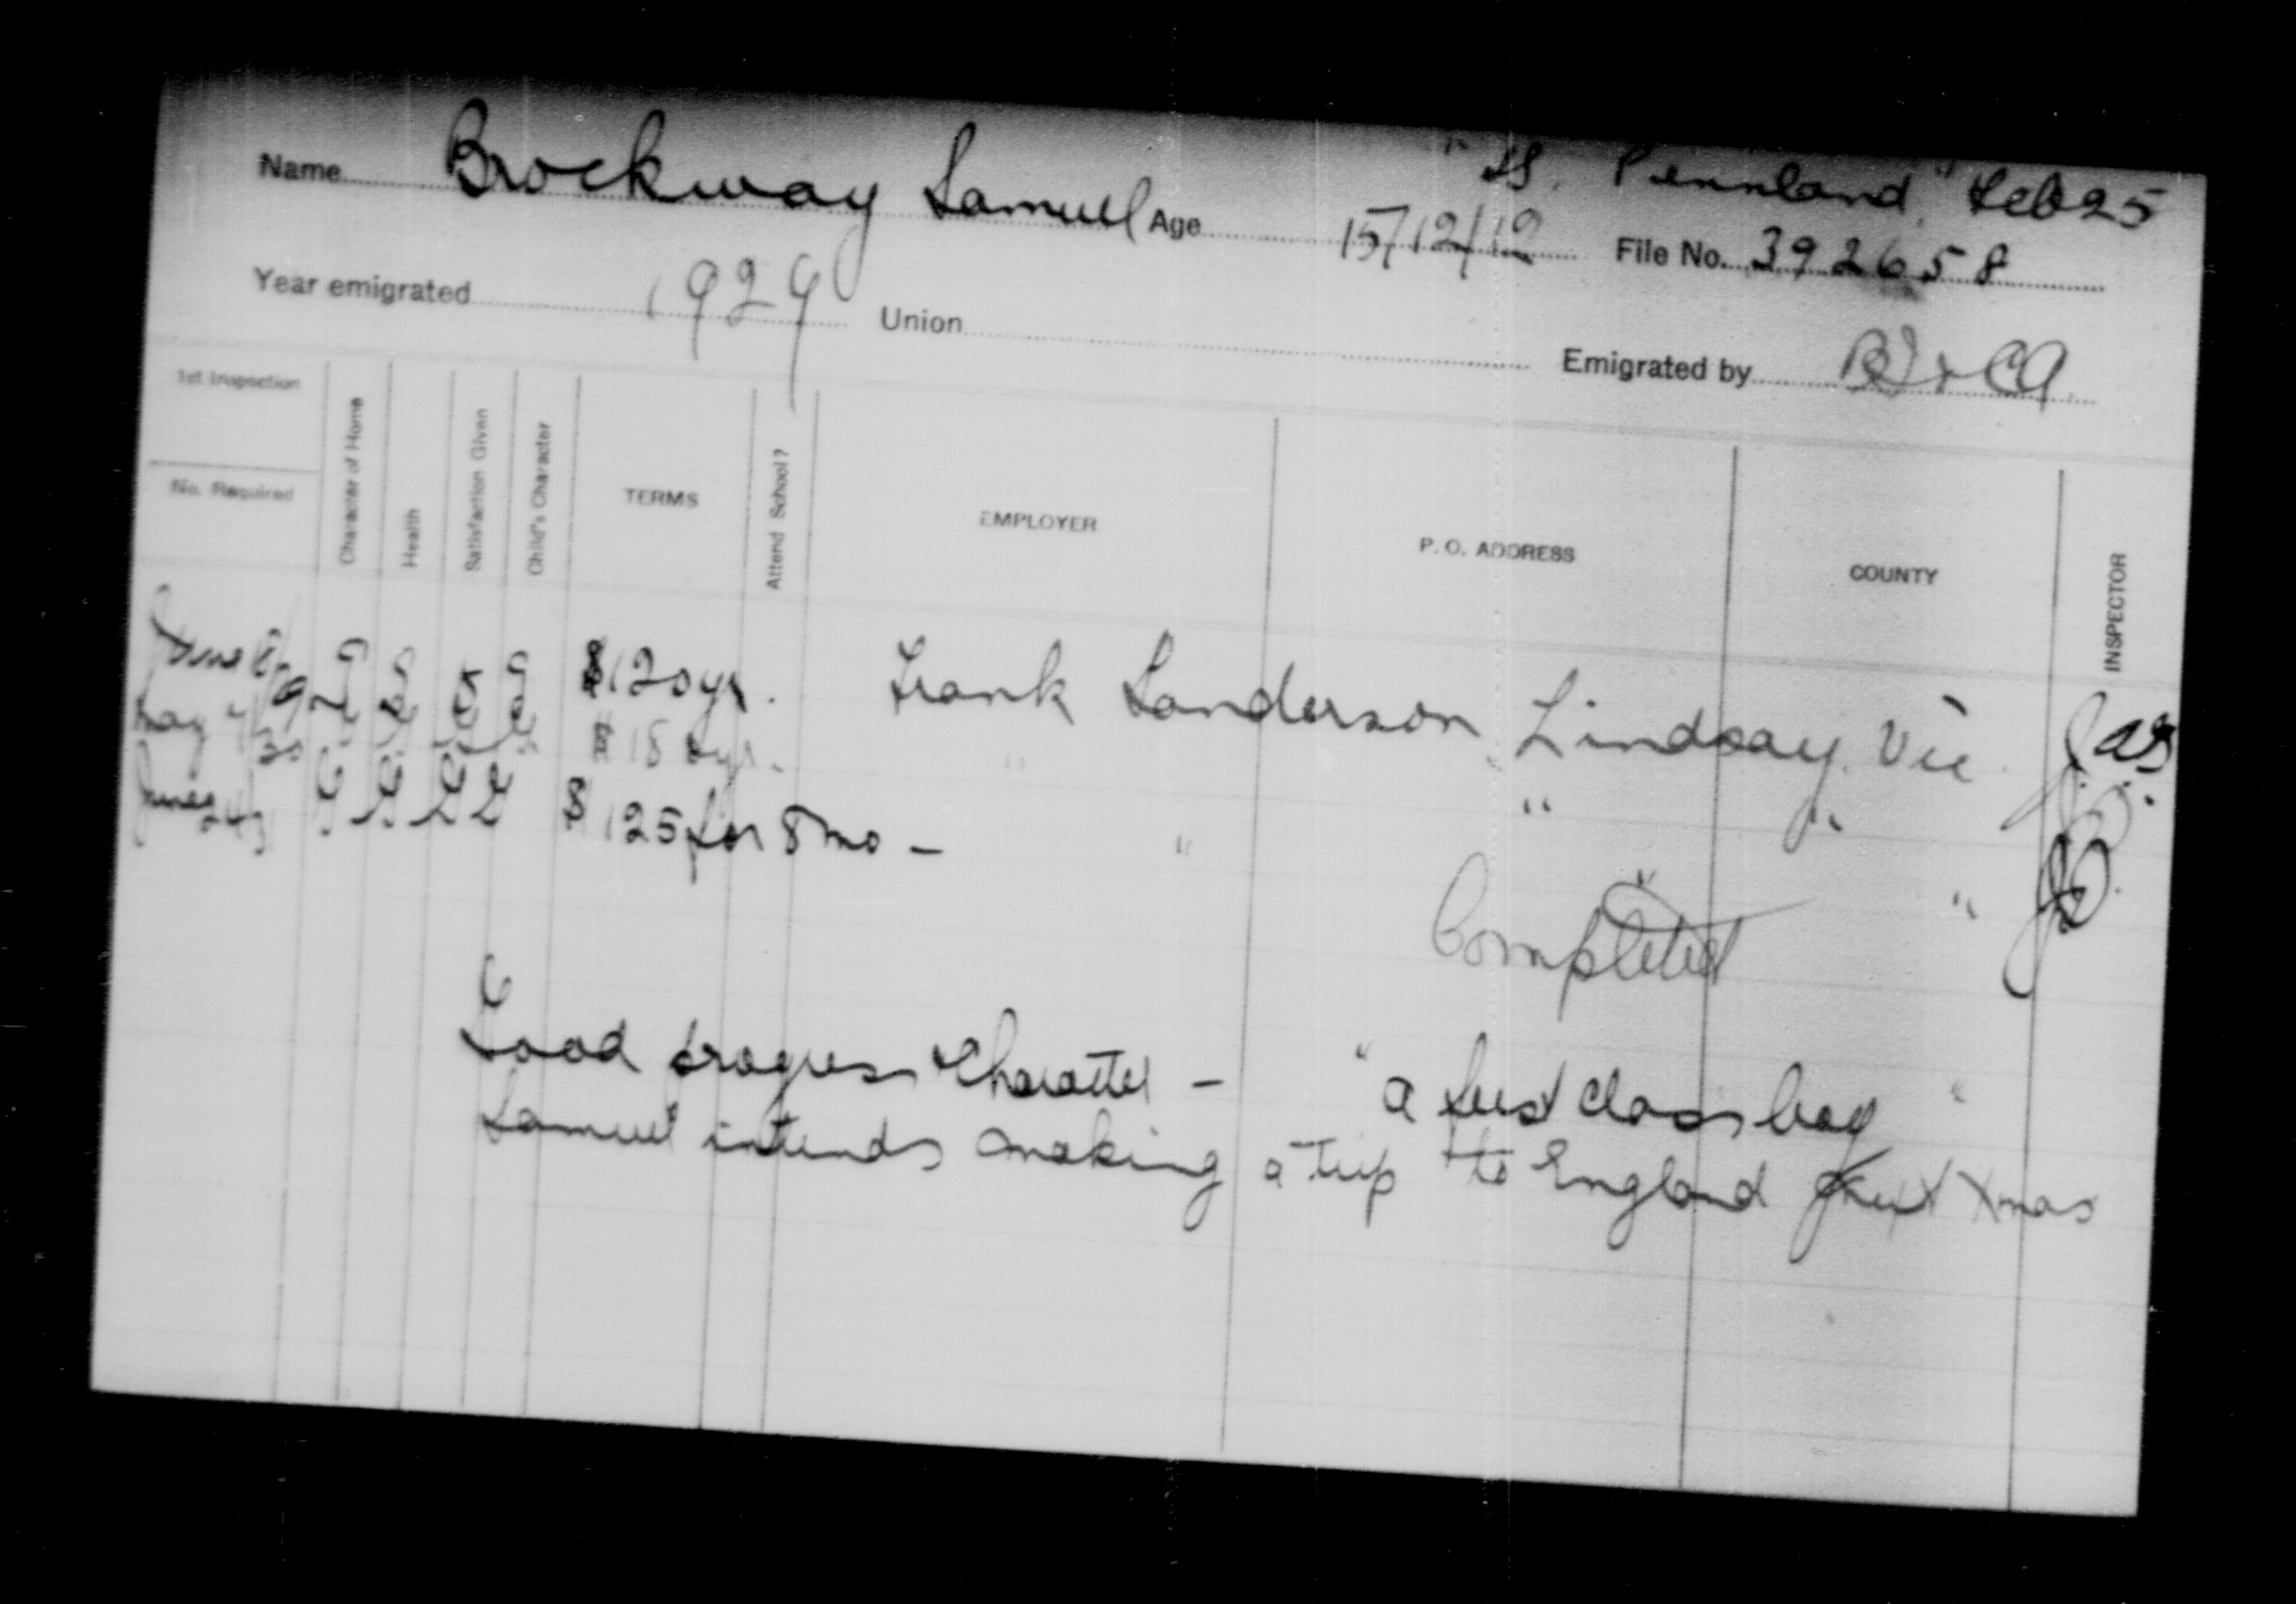 "SS. Pennland" Feb 25
Name Brockway Samuel Age 15/12/12 File No. 392658
Year emigrated 1929 Union Emigrated by
1st Inspection
No. Required
Character of Home
Health
Satisfaction Given
Child's Character
TERMS
Attend School?
EMPLOYER
P. O. ADDRESS
COUNTY
INSPECTOR
June G G G G $120 yr. Frank Sanderson Lindsay Vic
May $ yr. " " "
June 24 G G G G $125 for 8 mo – " " "
Completed
Good progress & Character – "a first class boy"
Samuel intends making a trip to England next Xmas